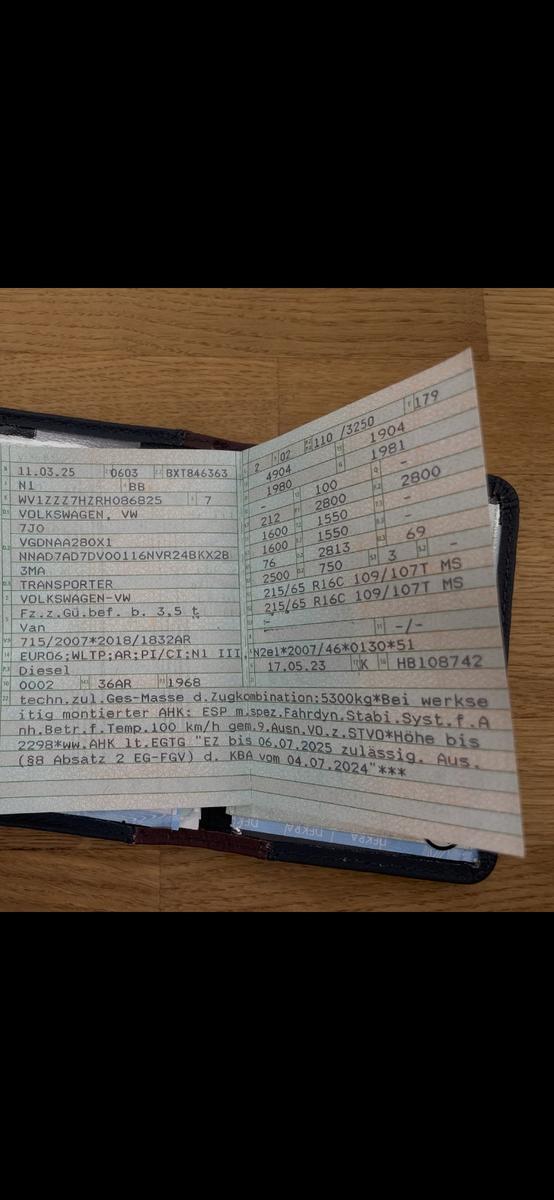 11.03.25 0603 BXT846363
N1 BB
WV1ZZZ7HZRH086825 7
VOLKSWAGEN, VW
7JO
VGDNAA280X1
NNAD7AD7DV00116NVR24BKX2B
3MA
TRANSPORTER
VOLKSWAGEN-VW
Fz.z.Gü.bef. b. 3,5 t
Van
715/2007*2018/1832AR
EURO6;WLTP;AR;PI/CI;N1 III,
Diesel
0002 36AR 1968
2 02 110 /3250 179
4904 1904
1980 1981
- 100 -
212 2800 2800
1600 1550 -
1600 1550 -
76 2813 69
2500 750 3 -
215/65 R16C 109/107T MS
215/65 R16C 109/107T MS
-/-
N2e1*2007/46*0130*51
17.05.23 K HB108742
techn.zul.Ges-Masse d.Zugkombination:5300kg*Bei werkse
itig montierter AHK: ESP m.spez.Fahrdyn.Stabi.Syst.f.A
nh.Betr.f.Temp.100 km/h gem.9.Ausn.VO.z.STVO*Höhe bis
2298*ww.AHK lt.EGTG "EZ bis 06.07.2025 zulässig. Aus.
(§8 Absatz 2 EG-FGV) d. KBA vom 04.07.2024"***
DEKRA DEKRA